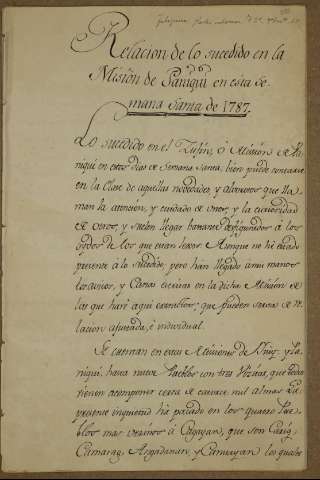 Relacion de lo sucedido en la
Mision de Paniqui en esta Se-
mana santa de 1787.
Lo sucedido en el ô Mision de Pa-
niqui en estos dias de Semana santa, bien puede contarse
en la Clase de aquellas novedades, y alborotos que lla-
man la atencion, y cuidado de unos, y la curiosidad
de otros, y suelen llegar bastante desfigurados à los
de los que estan lexos. Aunque no hè estado
presente à lo sucedido, pero han llegado à mis manos
los avisos, y Cartas escritas en la dicha Mision de
las que harè aqui extractos, que pueden servir de Re-
lacion ajustada, è individual.
Se cuentan en estas Misiones de Ytuy, y Pa-
niqui, hasta nueve Pueblos con tres Visitas, que
tienen acomponer cerca de catorce mil almas. La
presente inquietud ha parado en los quatro Pue-
blos mas vecinos à Cagayan, que son Carig,
Camarag, Angadanan, y Cauayan los quales